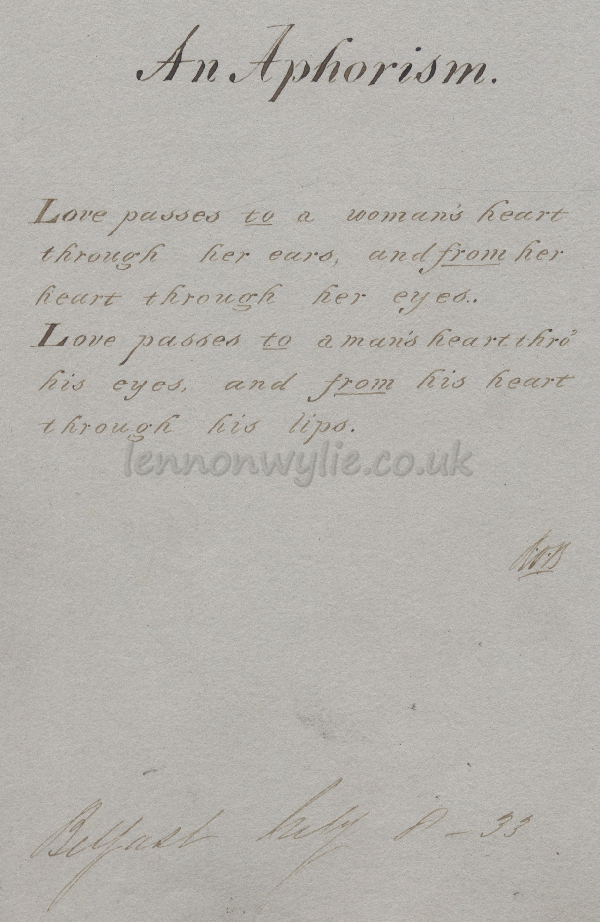 An Aphorism.
Love passes to a woman's heart
through her ears, and from her
heart through her eyes..
Love passes to a man's heart thro'
his eyes, and from his heart
through his lips.
lennonwylie.co.uk
Belfast July 8 - 33